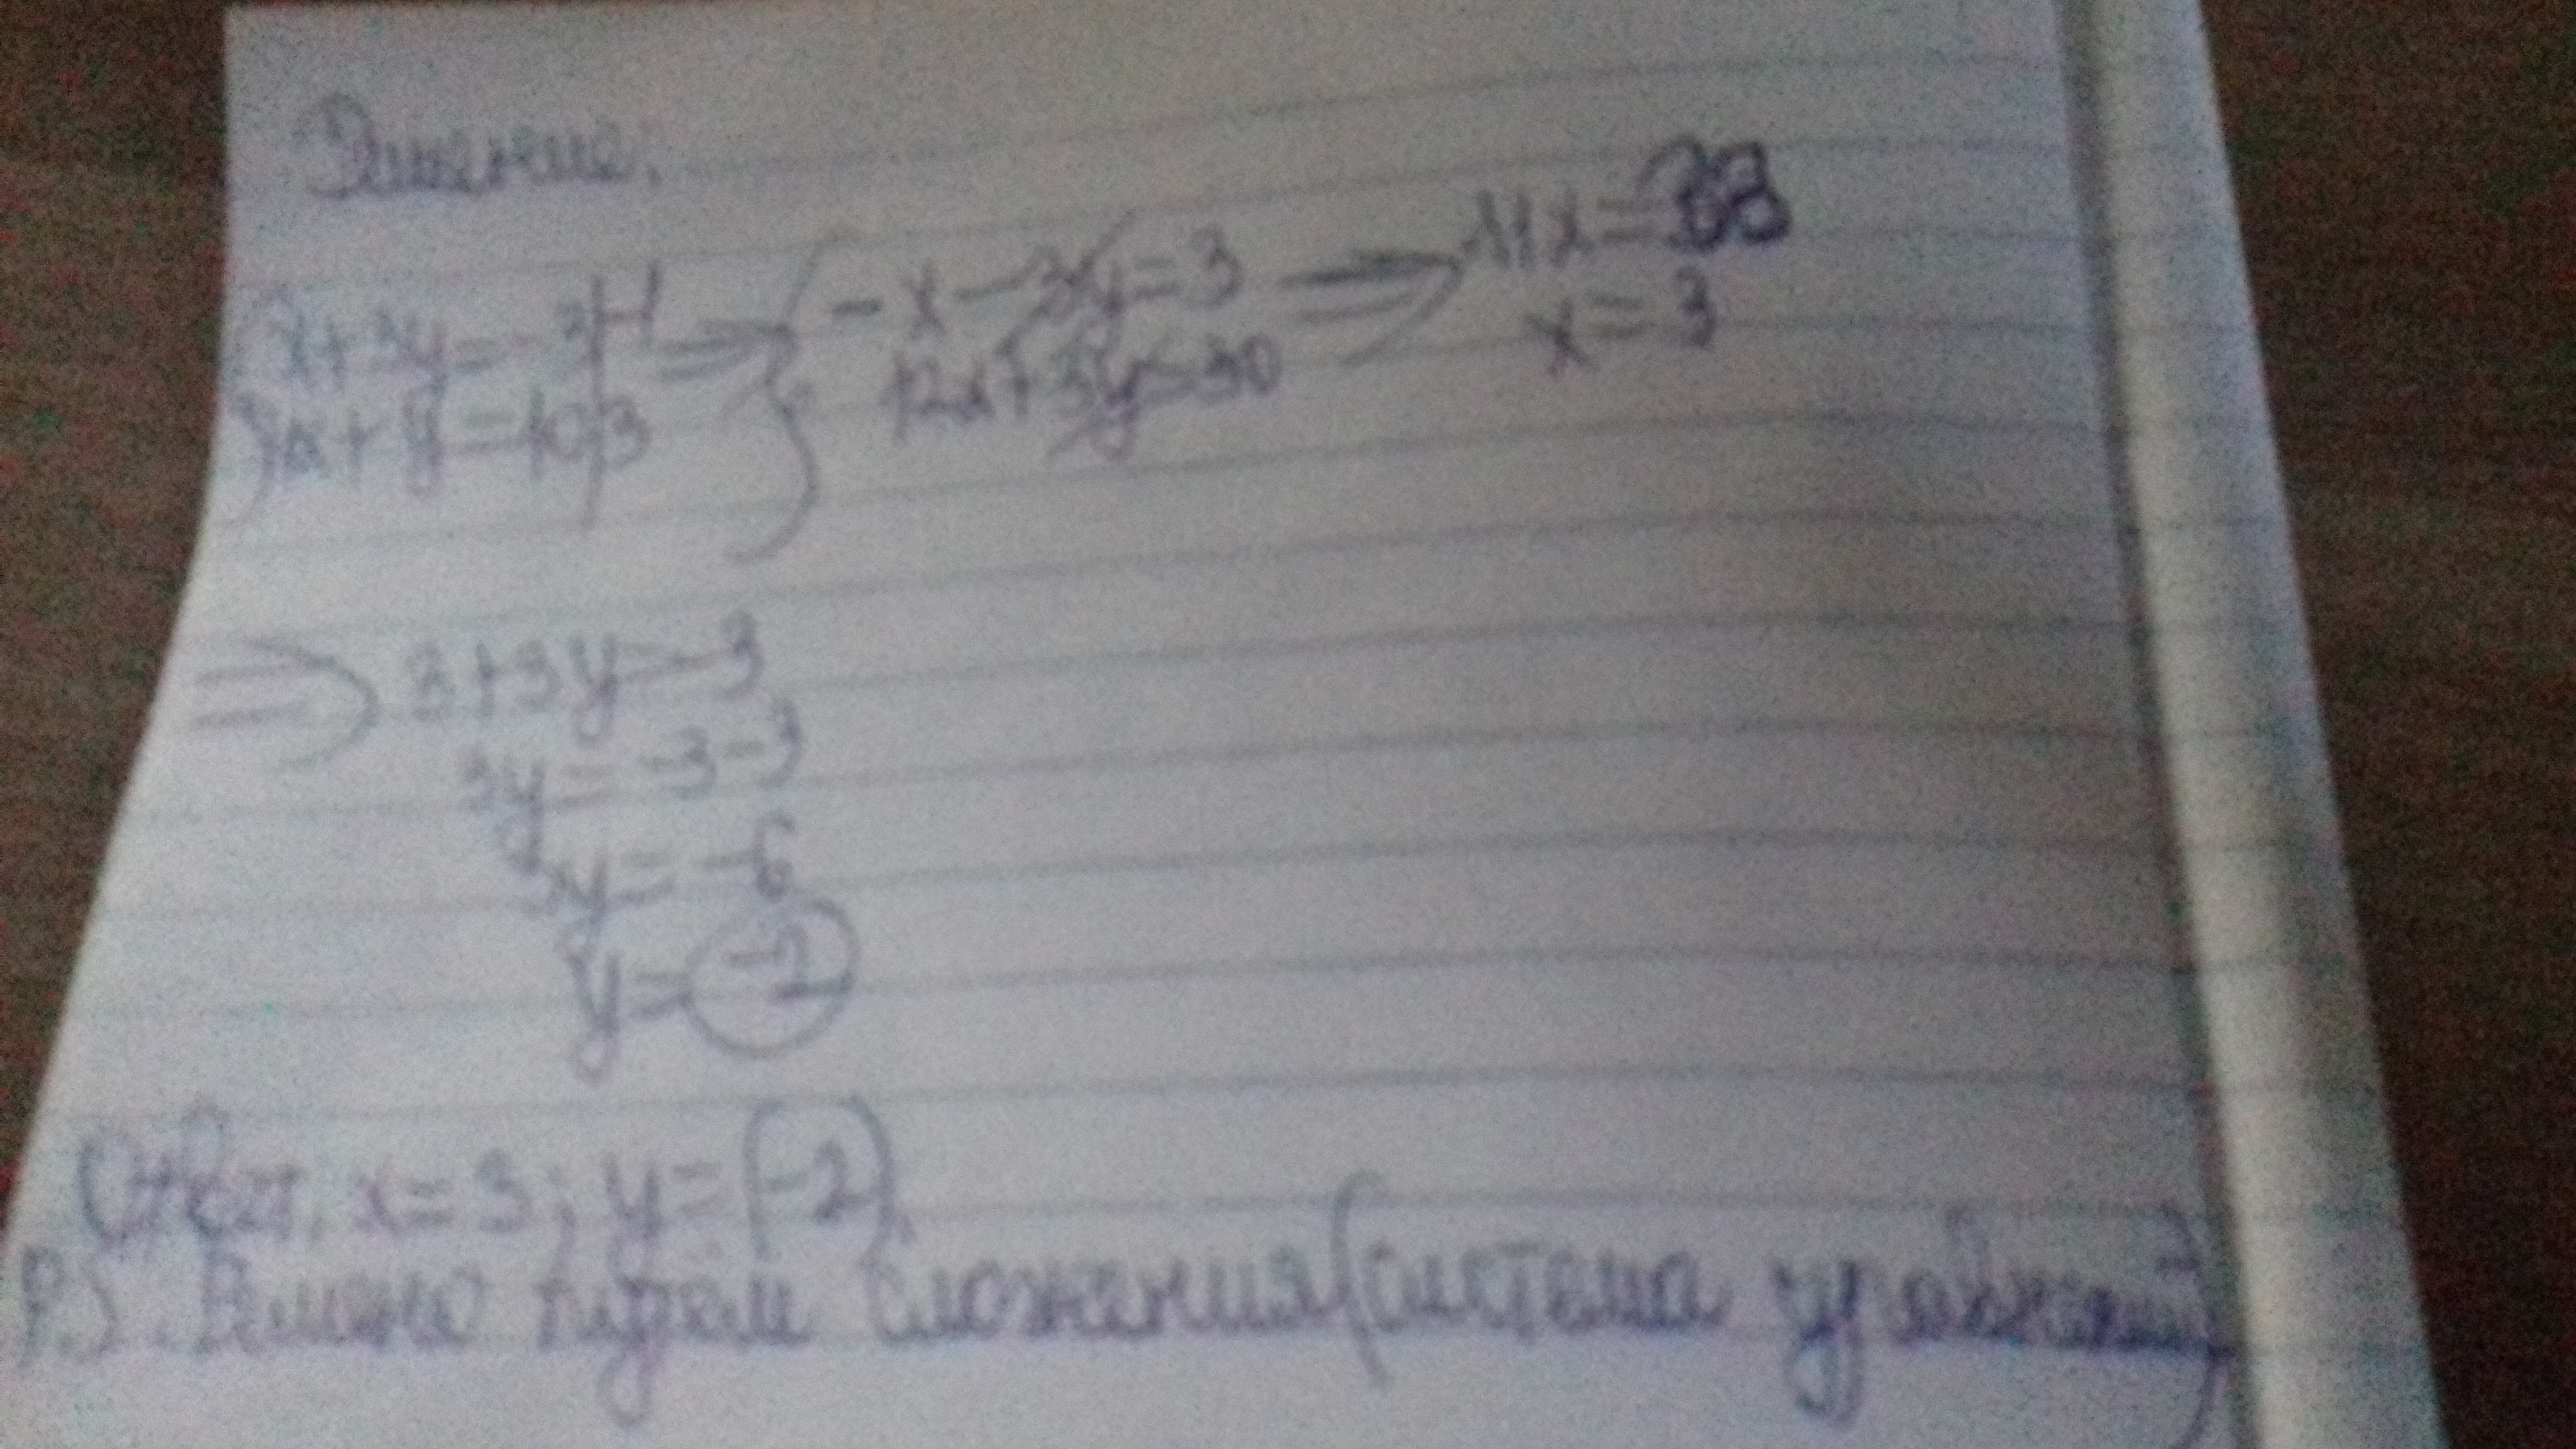 Решение.
{x+3y=-3|-1 => {-x-3y=3 => 11x=33
{4x+y=10|3 12x+3y=30 x=3
=> 3+3y=-3
3y=-3-3
3y=-6
y=-2
Ответ. x=3; y=(-2).
P.S. Решено путём сложения (система уравнений)